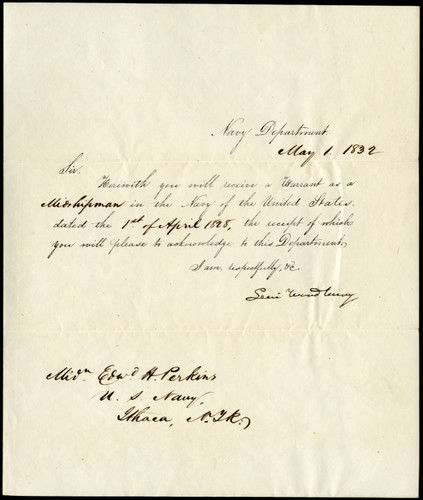 Navy Department
May 1. 1832
Sir.
Herewith you will receive a Warrant as a
Midshipman in the Navy of the United States.
dated the 1st of April 1828, the receipt of which
you will please to acknowledge to this Department,
I am, respectfully, &c
Levi Woodbury
Midn. Edwd A. Perkins
U. S. Navy,
Ithaca, N. Yk.